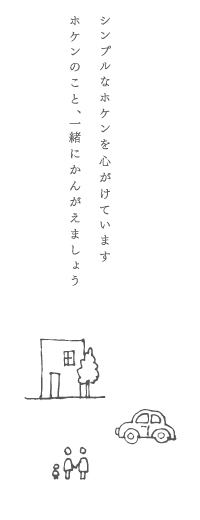 シンプルなホケンを心がけています
ホケンのこと、一緒にかんがえましょう